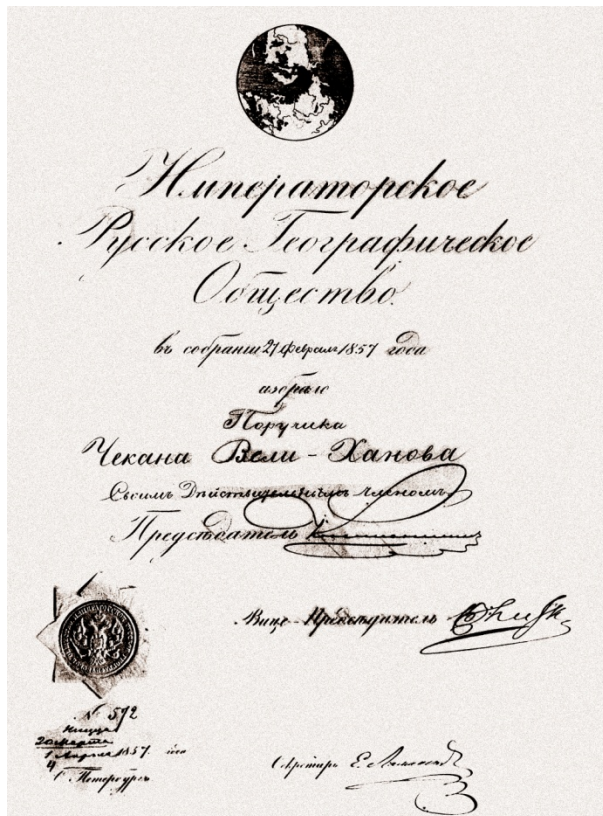 Императорское
Русское Географическое
Общество
въ собранiи 21 Февраля 1857 года
избрало
Поручика
Чекана Вели-Ханова
Своимъ Дѣйствительнымъ членомъ
Предсѣдатель
Вице-Предсѣдатель
№ 592
Ницца
1857
С Петербургъ
Секретарь Е.